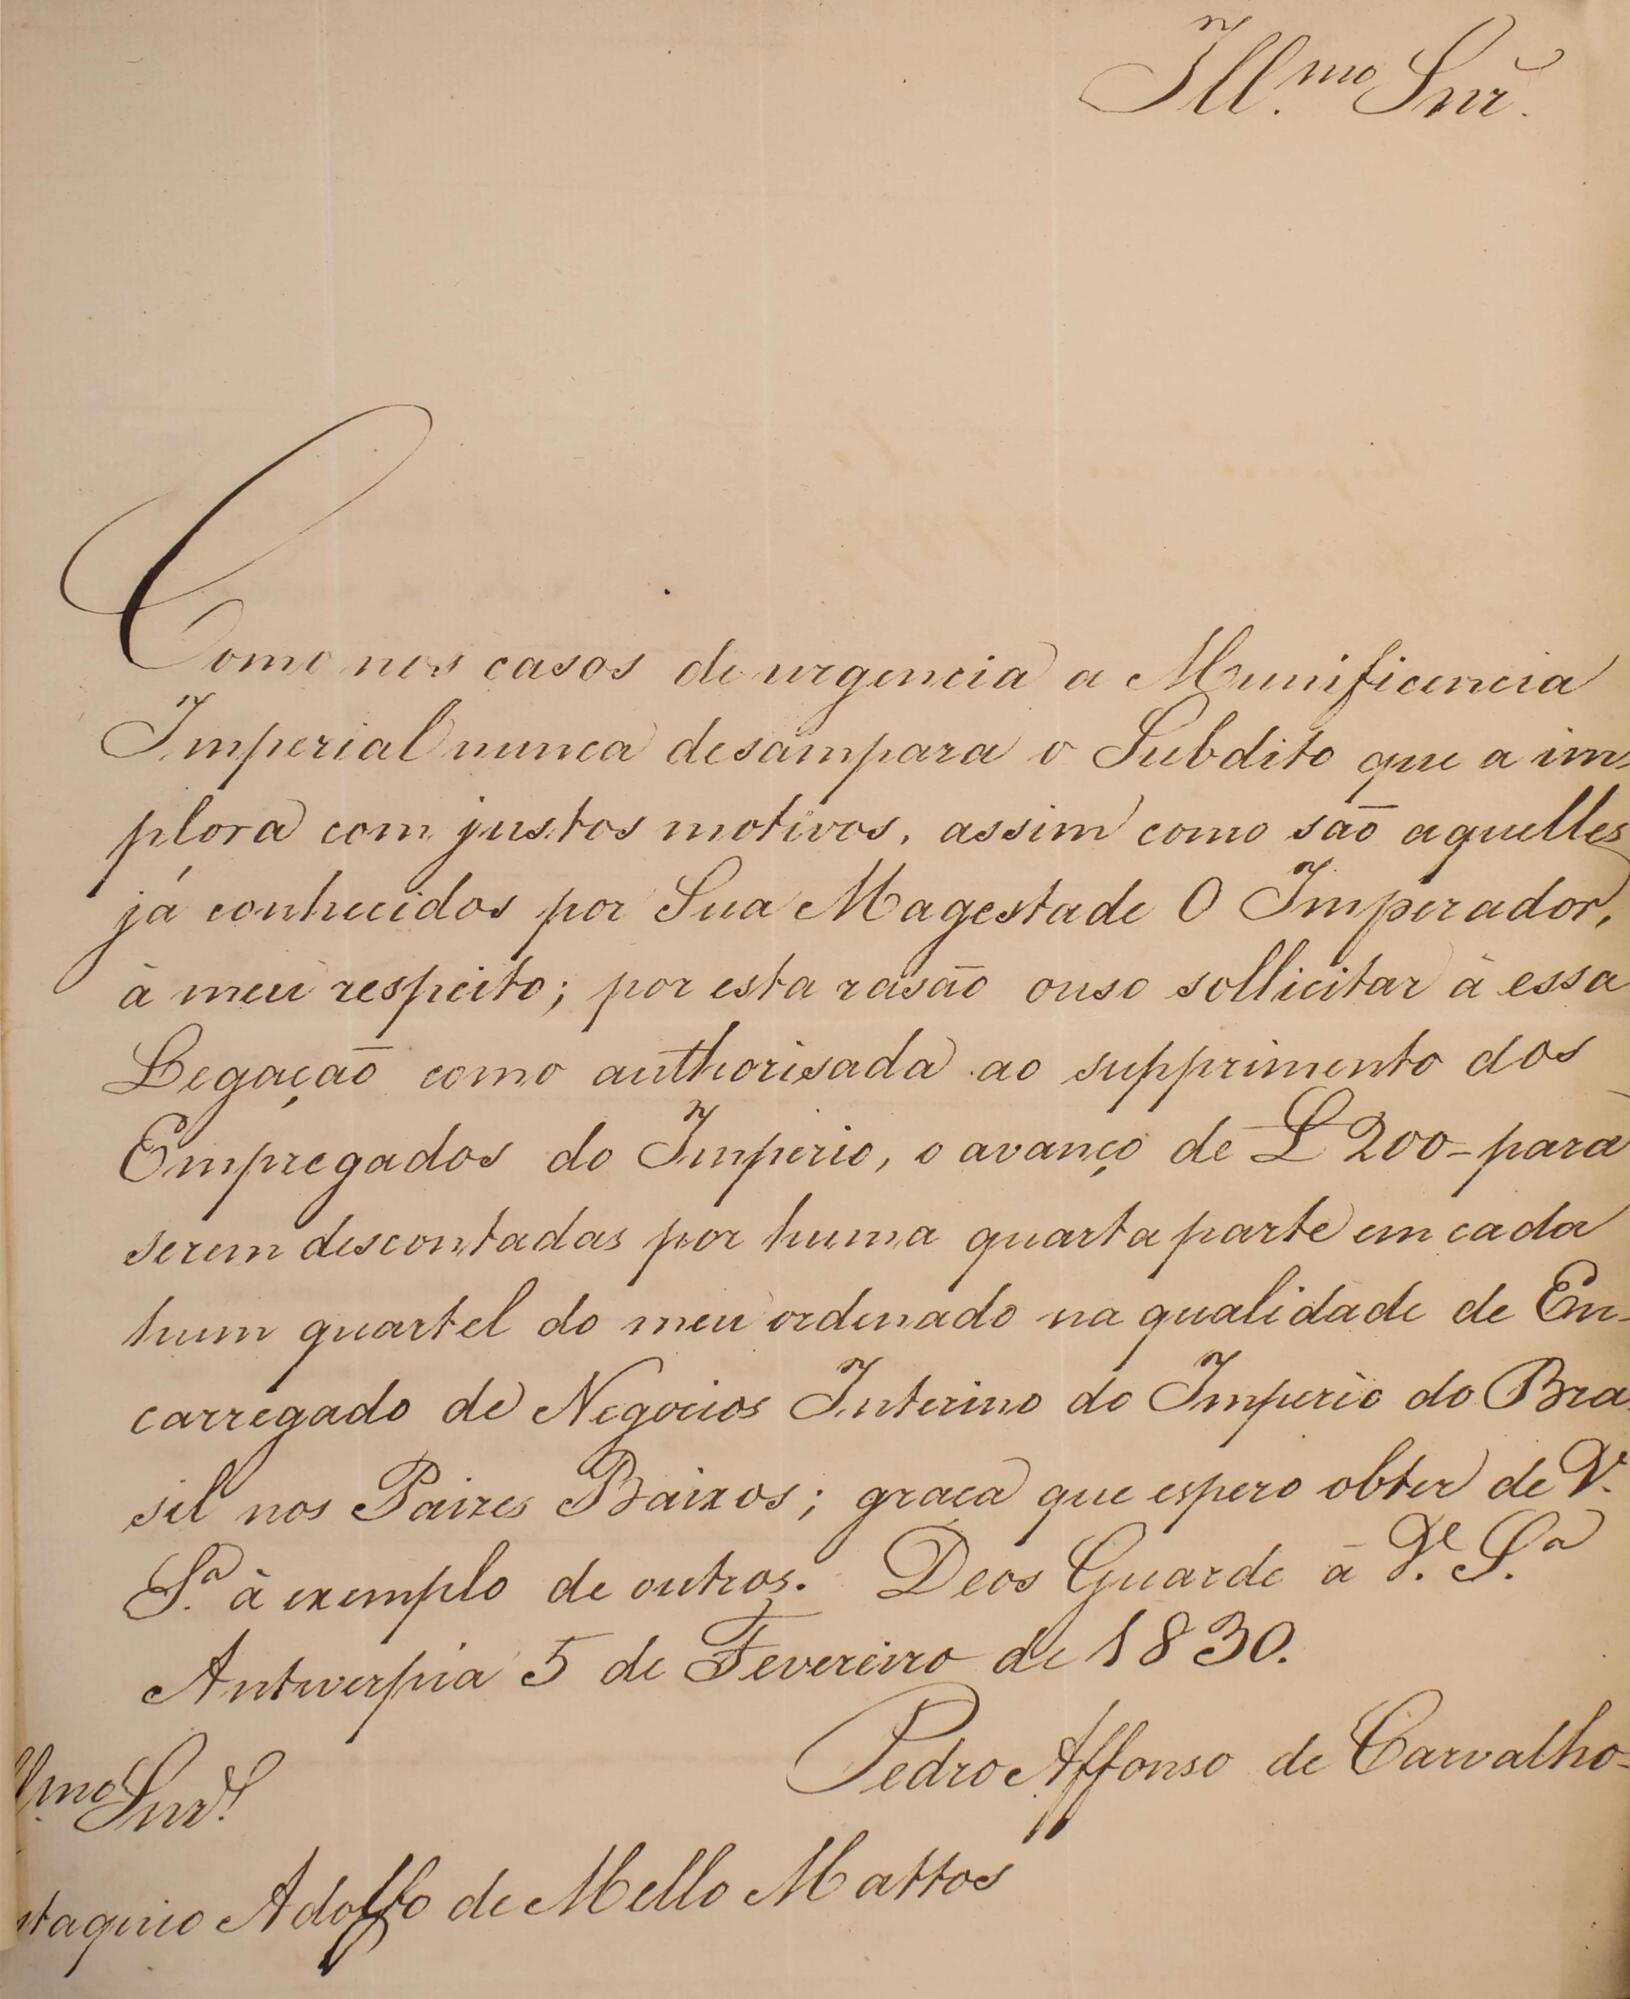 Ill.mo Snr.
Como nos casos de urgencia a Munificencia
Imperial nunca desampara o Subdito que a im-
plora com justos motivos, assim como são aquelles
já conhecidos por Sua Magestade O Imperador,
à meu respeito; por esta rasão ouso sollicitar à essa
Legação como authorisada ao supprimento dos
Empregados do Imperio, o avanço de £ 200- para
serem descontadas por huma quarta parte em cada
hum quartel do meu ordenado na qualidade de En-
carregado de Negocios Interino do Imperio do Bra-
sil nos Paizes Baixos; graça que espero obter de V.
S.a à exemplo de outros. Deos Guarde à V. S.a
Antwerpia 5 de Fevereiro de 1830.
Pedro Affonso de Carvalho-
Ill.mo Snr.
staquio Adolfo de Mello Mattos